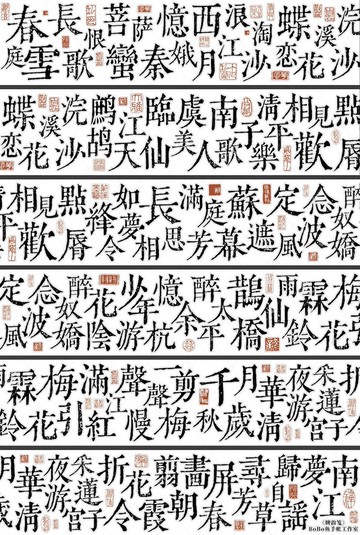 春庭雪 長恨歌 菩薩蠻 憶秦娥 西江月 浪淘沙 蝶戀花
蝶戀花 浣溪沙 鹧鸪天 臨江仙 虞美人 南歌子 清平樂 相見歡
清平 相見歡 點絳脣 如夢令 長相思 滿庭芳 蘇幕遮 定風波 念奴嬌 醉
定風波 念奴嬌 醉花陰 少年游 憶余杭 醉太平 鵲橋仙 雨霖鈴 梅花
雨霖鈴 梅花引 滿江紅 聲聲慢 一剪梅 千秋歲 月華清 夜游宮 采蓮子 折花
月華清 夜游宮 采蓮子 折花 翦朝霞 畫屏春 尋芳 歸自謠 夢 南
BoBo魚手帳工作室